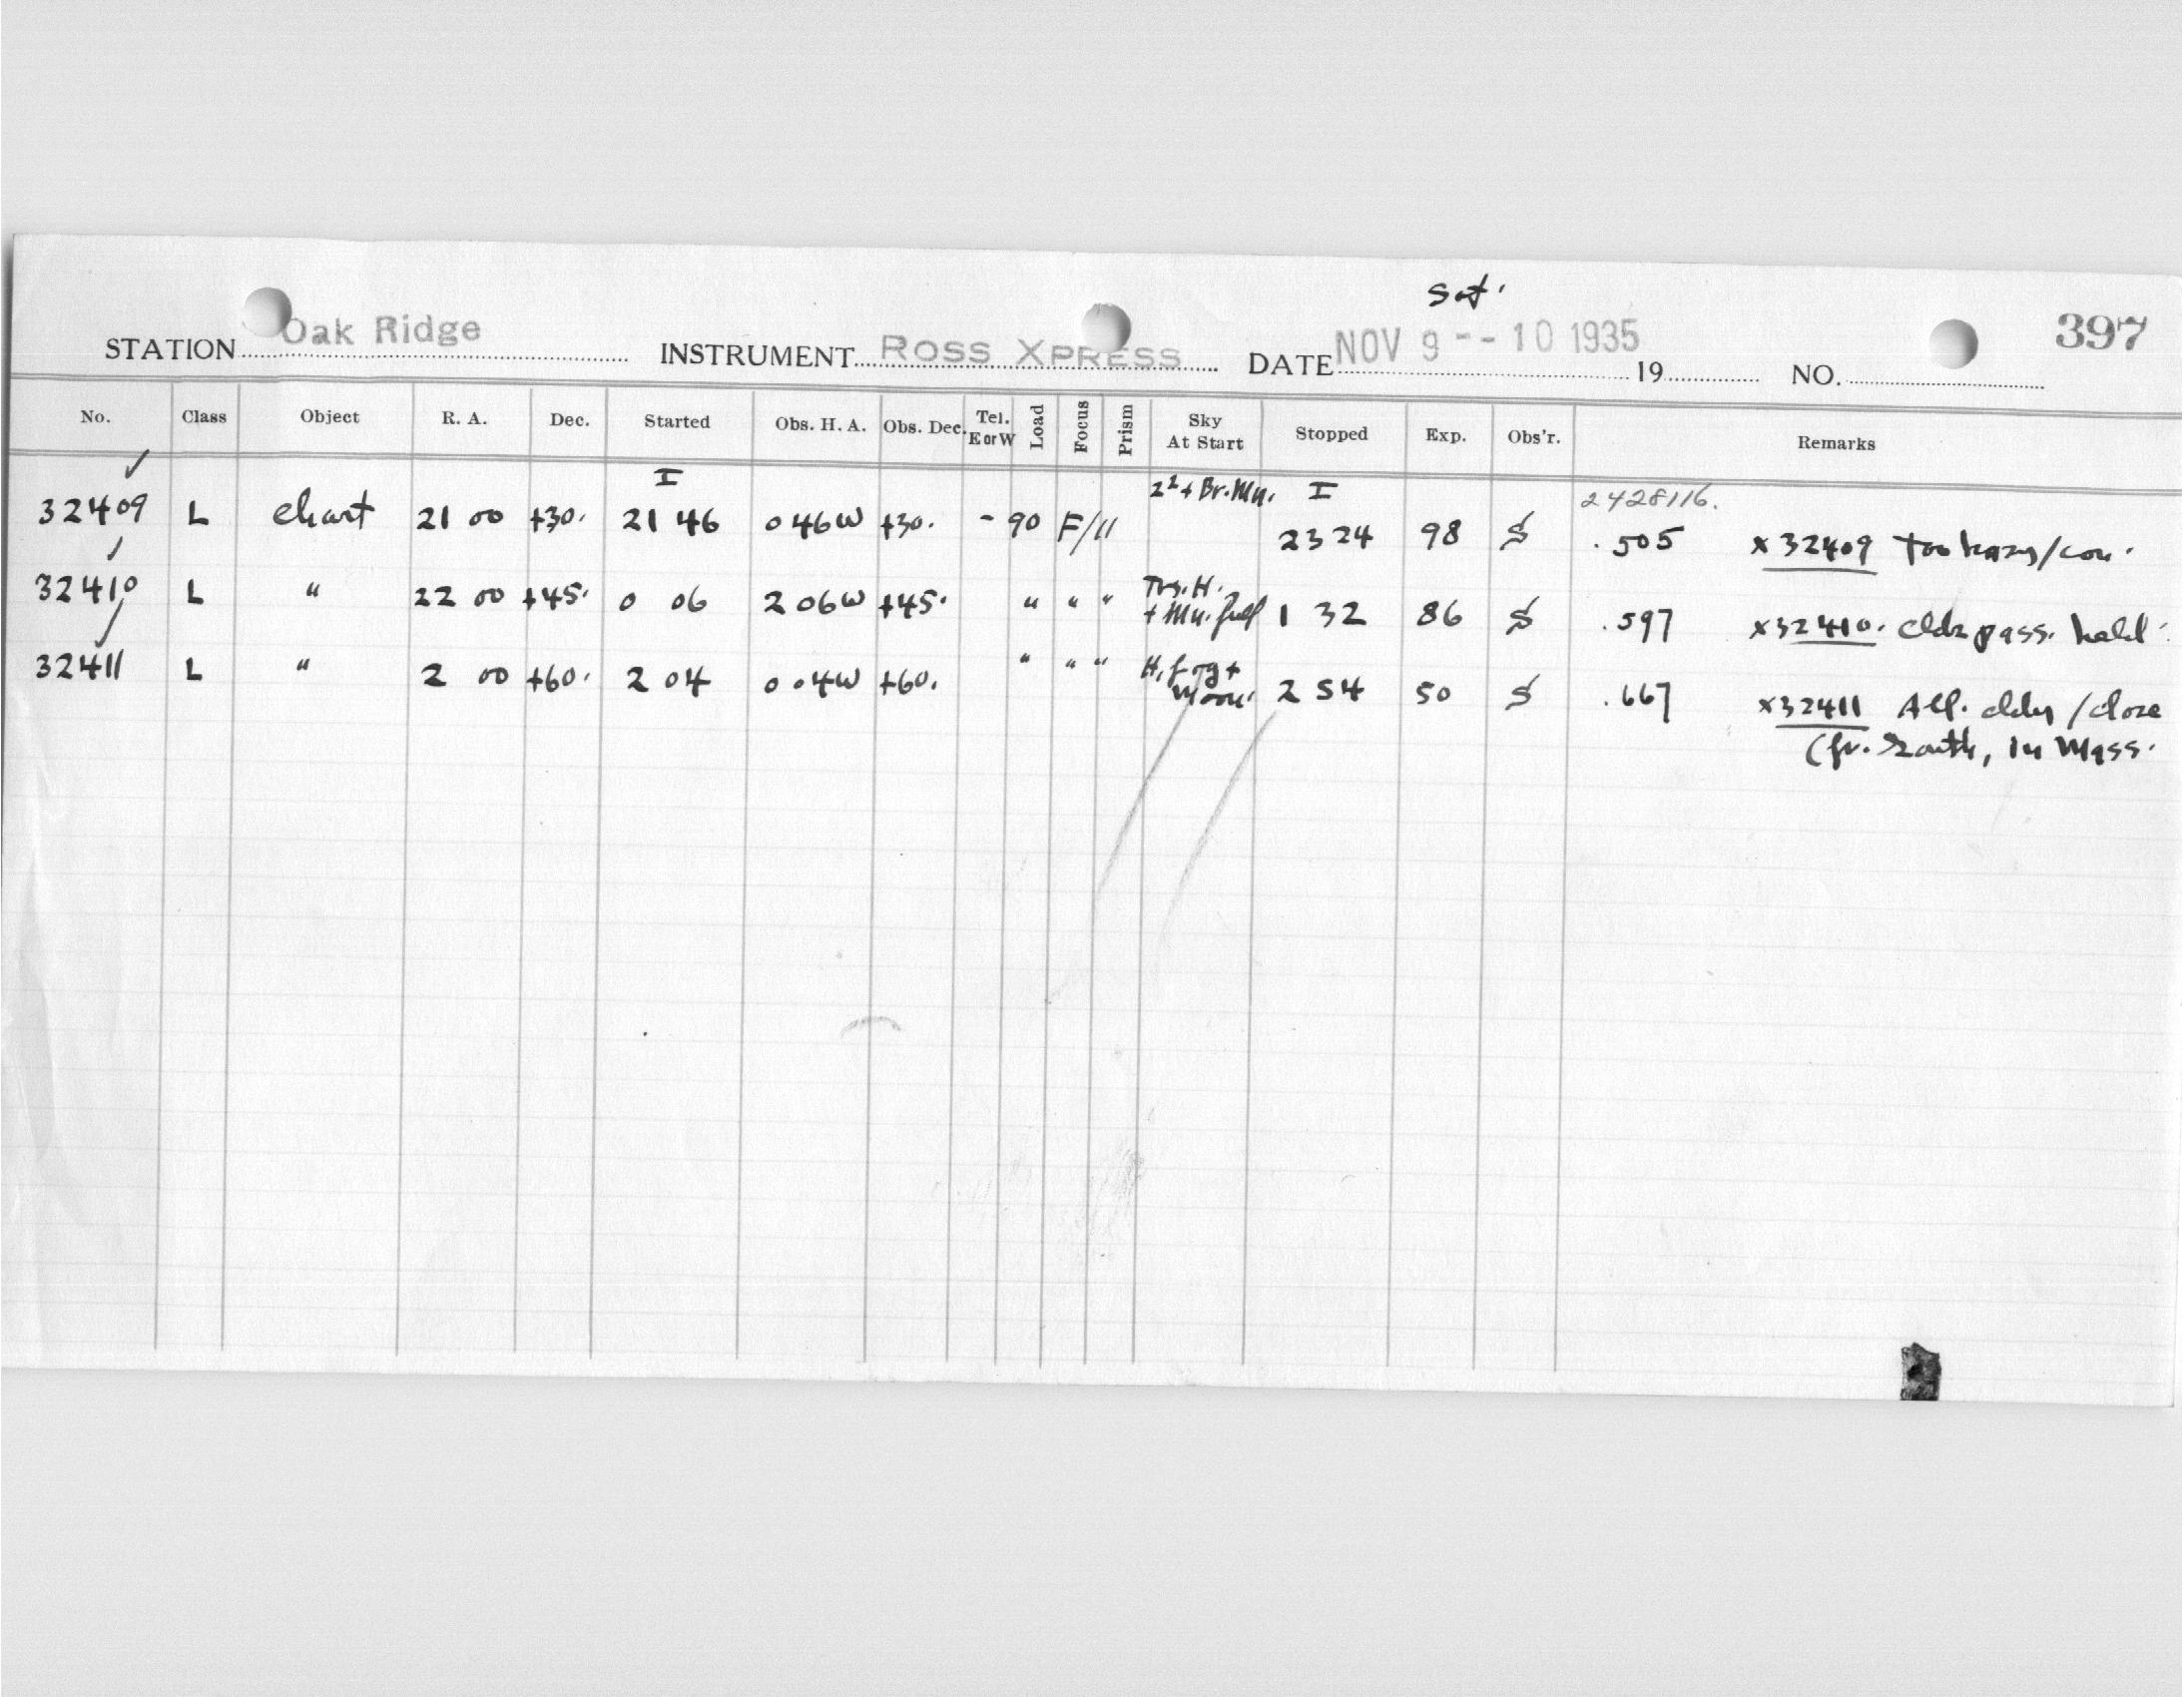 Sat.
STATION Oak Ridge INSTRUMENT ROSS XPRESS DATE NOV 9 -- 10 1935 19 NO. 397
No. Class Object R. A. Dec. Started Obs. H. A. Obs. Dec. Tel. E or W Load Focus Prism Sky At Start Stopped Exp. Obs'r. Remarks
I + Br. Mn. I 2428116.
32409 L chart 21 00 +30. 21 46 0 46W +30. - 90 F/11 23 24 98 S .505 x32409 Too hazy/con.
32410 L " 22 00 +45. 0 06 2 06W +45. " " " H. + Mn. full 1 32 86 S .597 x32410. cldz pass.
32411 L " 2 00 +60. 2 04 0 04W +60. " " " H, fog + Moon. 2 54 50 S .667 x32411 All. cldy /close
(fr. South, in Mass.